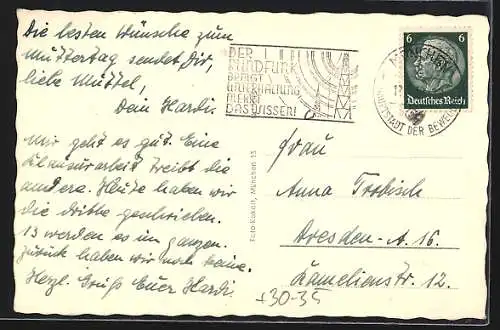 Die besten Wünsche zum
Muttertag sendet Dir,
liebe Muttel,
Dein Hardi.
Mir geht es gut. Eine
Klausurarbeit treibt die
andere. Heute haben wir
die dritte geschrieben.
13 werden es im ganzen.
Zurück haben wir noch keine.
Herzl. Gruß Euer Hardi.
DER
RUNDFUNK
BRINGT
UNTERHALTUNG
MEHRT
DAS WISSEN!
MÜNCHEN
HAUPTSTADT DER BEWEGUNG
6 6
Deutsches Reich
Frau
Anna Trobisch
Dresden-A. 16.
Kamelienstr. 12.
München 15
+30-35